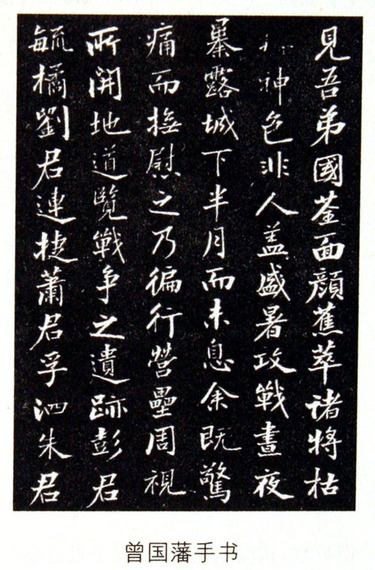 見吾弟國荃面顏蕉萃诸將枯
神色非人盖盛暑攻戰晝夜
暴露城下半月而未息余既驚
痛而撫慰之乃徧行營壘周視
所開地道覽戰争之遺跡彭君
毓橘劉君連捷蕭君孚泗朱君
曾国藩手书